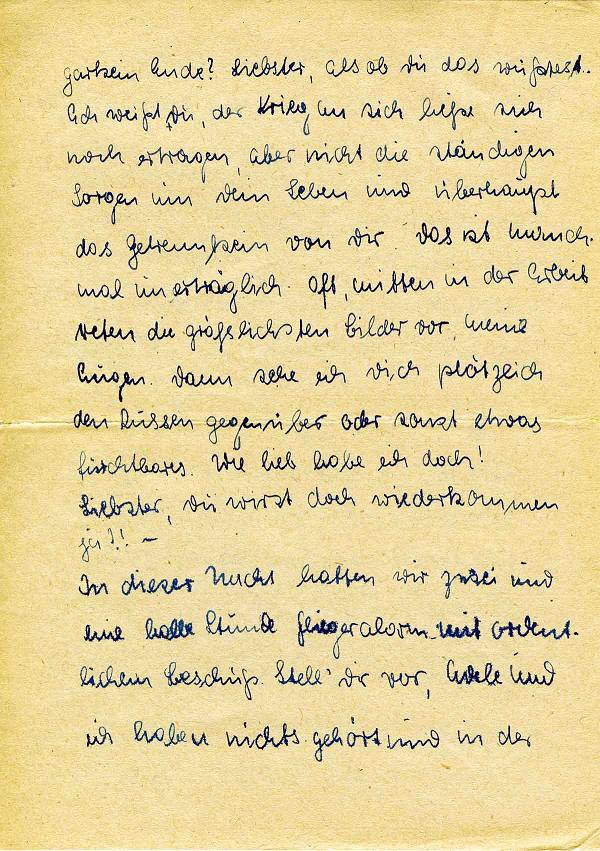 garkein Ende? Liebster, als ob du das wüßtest.
Ach weißt du, der Krieg an sich ließe sich
noch ertragen, aber nicht die ständigen
Sorgen um dein Leben und überhaupt
das Getrenntsein von dir. Das ist manch-
mal unerträglich. Oft, mitten in der Arbeit
treten die gräßlichsten Bilder vor meine
Augen. Dann sehe ich dich plötzlich
den Russen gegenüber oder sonst etwas
furchtbares. Wie lieb habe ich doch!
Liebster, du wirst doch wiederkommen
ja?! –
In dieser Nacht hatten wir zwei und
eine halbe Stunde Fliegeralarm mit ordent-
lichem Beschuß. Stell' dir vor, und
ich haben nichts gehört und in der